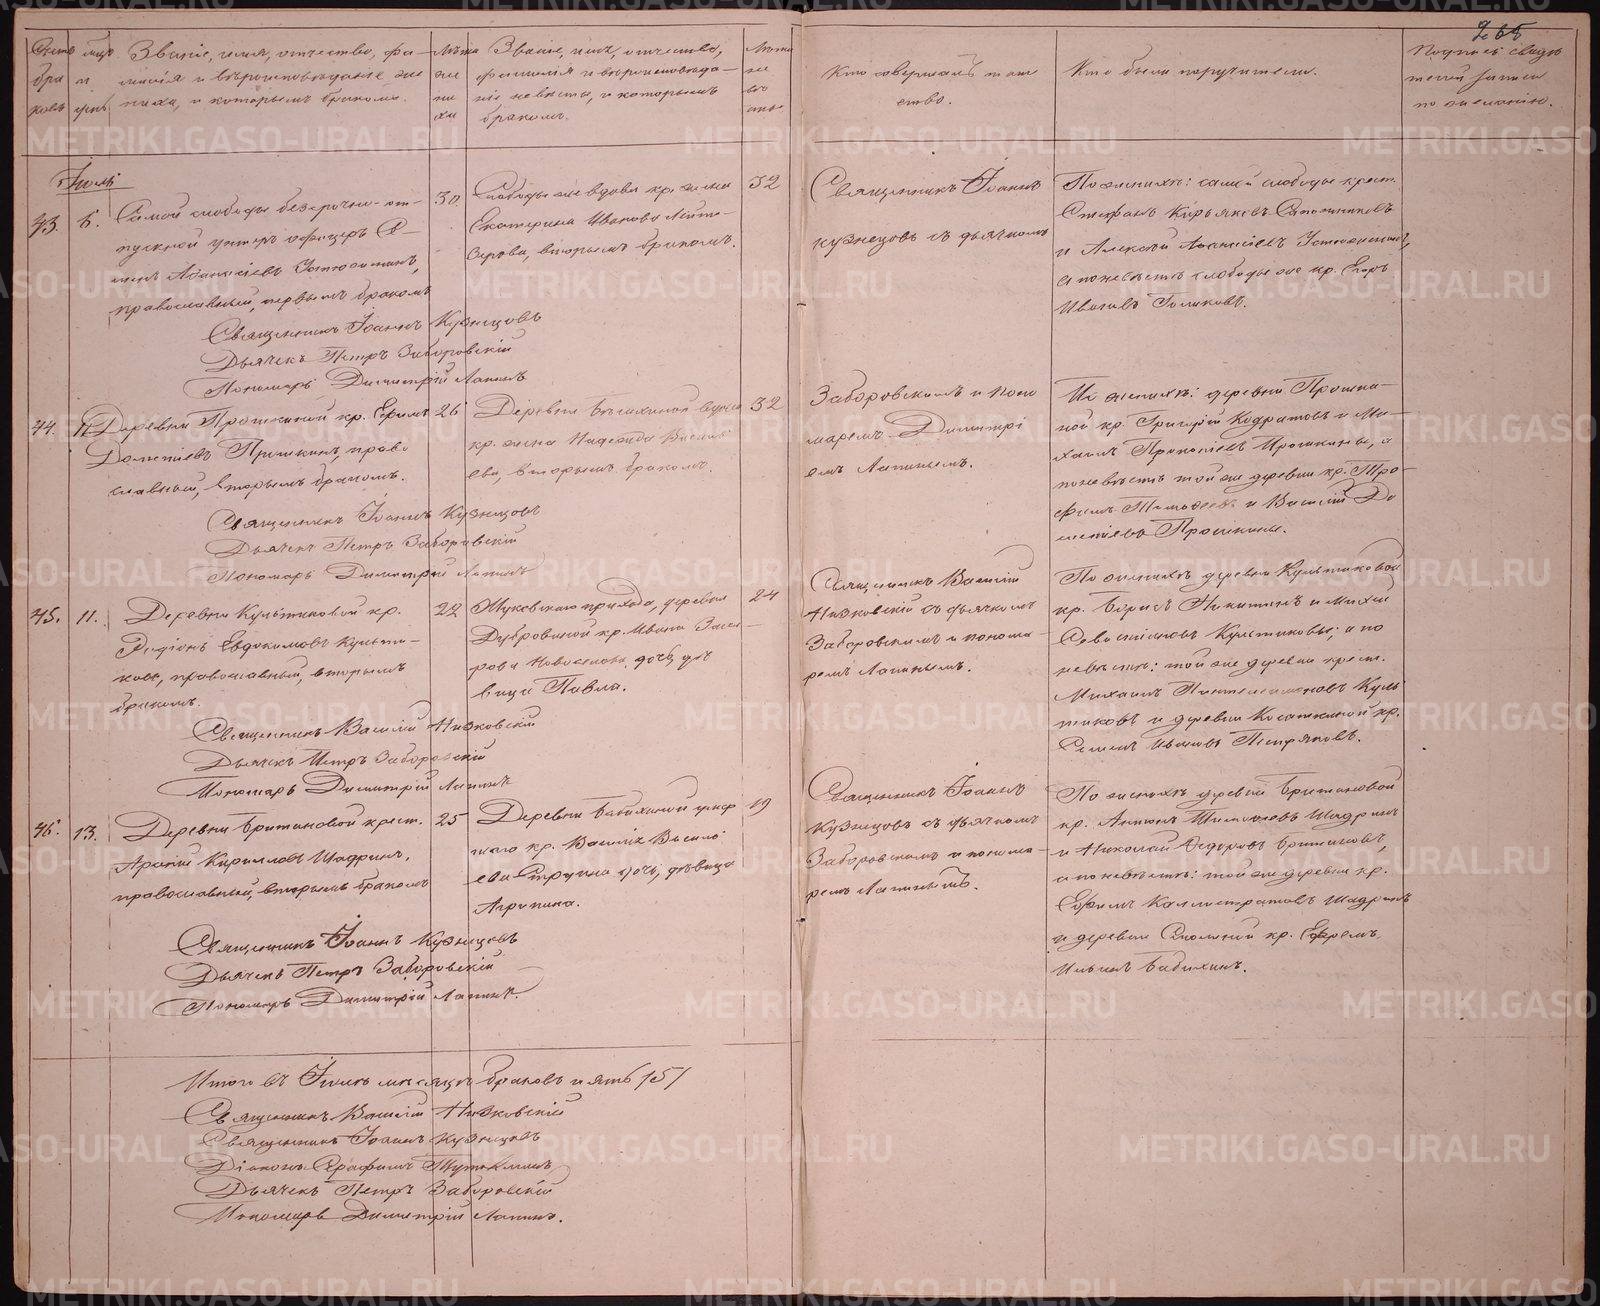 265
Счетъ
бра
ковъ
мцъ
и
день
Званіе, имя, отчество, фа-
милія и вѣроисповѣданіе же
ниха, и которымъ бракомъ.
Лѣта
же
ни
ха
Званіе, имя, отчество,
фамилія и вѣроисповѣда-
ніе невѣсты, и которымъ
бракомъ.
Лѣта
не
вѣ
сты
Кто совершалъ таин
ство.
Кто были поручители.
Подпись свидѣ
телей записи
по желанію.
Іюль
43.
6.
Самой слободы безсрочно-от-
пускной унтеръ офицеръ
Аѳанасіевъ Устюжанинъ,
православный, первымъ бракомъ
30.
Слободы же вдова кр. жена
Екатерина Иванова
вторымъ бракомъ.
32
Священникъ Іоаннъ
Кузнецовъ съ дьячкомъ
По женихѣ: самой слободы крест.
Стефанъ Кирьяковъ Сапожниковъ
и Алексѣй Аѳанасіевъ Устюжанинъ,
а по невѣстѣ слободы же кр. Егоръ
Ивановъ Голиковъ.
Священникъ Іоаннъ Кузнецовъ
Дьячекъ Петръ Заборовскій
Пономарь Димитрій Лапинъ
44.
11
Деревни Прошкиной кр. Ефимъ
Дометіевъ Прошкинъ, право
славный, вторымъ бракомъ.
26
Деревни вдова
кр. жена Надежда Василь
ева, вторымъ бракомъ.
32
Заборовскимъ и поно
маремъ Димитрі
емъ Лапинымъ.
По женихѣ: деревни Прошки-
ной кр. Григорій Кодратовъ и Ми-
хаилъ Прокопіевъ Прошкины, а
по невѣстѣ той же деревни кр. Тро-
фимъ Тимоѳеевъ и Василій До
метіевъ Прошкины.
Священникъ Іоаннъ Кузнецовъ
Дьячекъ Петръ Заборовскій
Пономарь Димитрій Лапинъ
45.
11.
Деревни Культиковой кр.
Родіонъ Евдокимовъ Культи-
ковъ, православный, вторымъ
бракомъ.
22
Щуковскаго прихода, деревни
Дубровиной кр. Ивана
Новоселова дочь, дѣ
вица Павла.
24
Священникъ Василій
Низковскій съ дьячкомъ
Заборовскимъ и понома-
ремъ Лапинымъ.
По женихѣ деревни Культиковой
кр. Борисъ Никитинъ и Михей
Севастіановъ Культиковы; а по
невѣстѣ: той же деревни крест.
Михаилъ Пантелеимоновъ Куль
тиковъ и деревни Касаткиной кр.
Семенъ Ивановъ Петряковъ.
Священникъ Василій Низковскій
Дьячекъ Петръ Заборовскій
Пономарь Димитрій Лапинъ
46.
13.
Деревни Бритвиновой крест.
Кирилловъ Шадринъ,
православный, вторымъ бракомъ
25
Деревни Бабихиной умер
шаго кр. Василія Василь
ева дочь, дѣвица
Агрипина.
19
Священникъ Іоаннъ
Кузнецовъ съ дьячкомъ
Заборовскимъ и понома-
ремъ Лапинымъ.
По женихѣ деревни Бритвиновой
кр. Антонъ Шадринъ
и Николай Ѳедоровъ
а по невѣстѣ: той же деревни кр.
Ефимъ Каллистратовъ Шадринъ
и деревни кр. Ефремъ
Ильинъ Бабихинъ.
Священникъ Іоаннъ Кузнецовъ
Дьячекъ Петръ Заборовскій
Пономарь Димитрій Лапинъ.
Итого въ Іюлѣ мѣсяцѣ браковъ пять /5/
Священникъ Василій Низковскій
Священникъ Іоаннъ Кузнецовъ
Діаконъ Серафимъ
Дьячекъ Петръ Заборовскій
Пономарь Димитрій Лапинъ.
METRIKI.GASO-URAL.RU